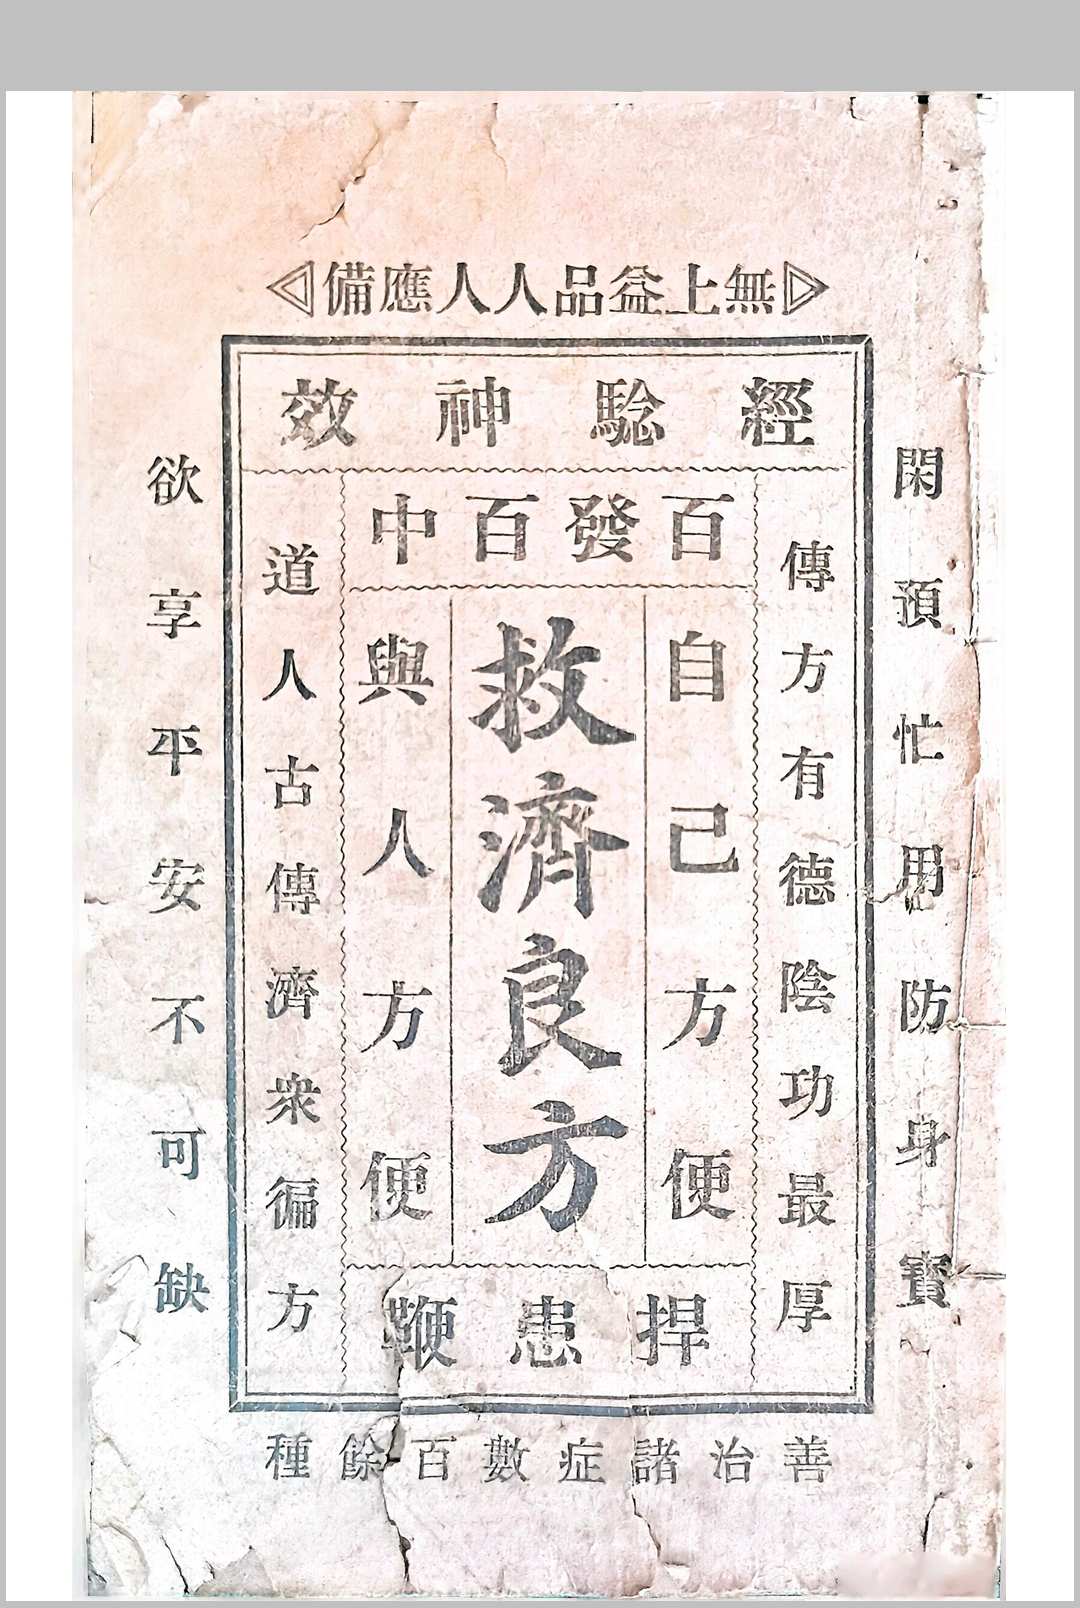 無上益品人人應備
閑預忙用防身寶
經騐神效
傳方有德陰功最厚
百發百中
自己方便
救濟良方
與人方便
捍患鞭
道人古傳濟衆徧方
欲享平安不可缺
善治諸症數百餘種